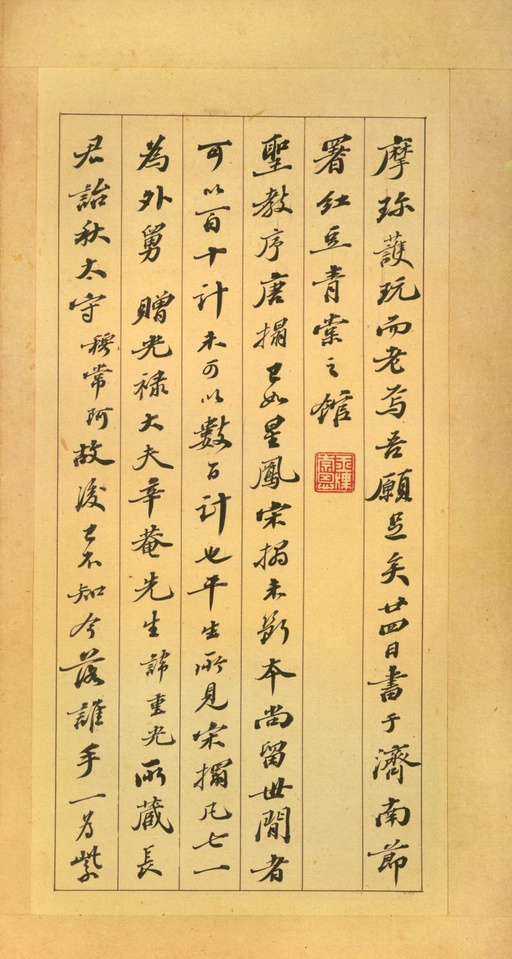 摩珎護玩而老焉吾願足矣廿四日書于濟南節
署紅豆青棠之館
聖教序唐搨已如星鳳宋搨未斷本尚留世間者
可以百十計未可以數百計也平生所見宋搨凡七一
為外舅贈光祿大夫辛菴先生諱重光所藏長
君詒秋太守穆常阿故後已不知今落誰手一為紫